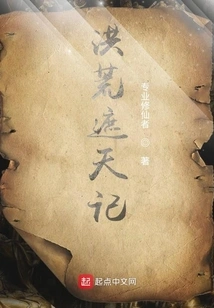 洪荒遮天记
专业修仙者 ◎ 著
起点中文网